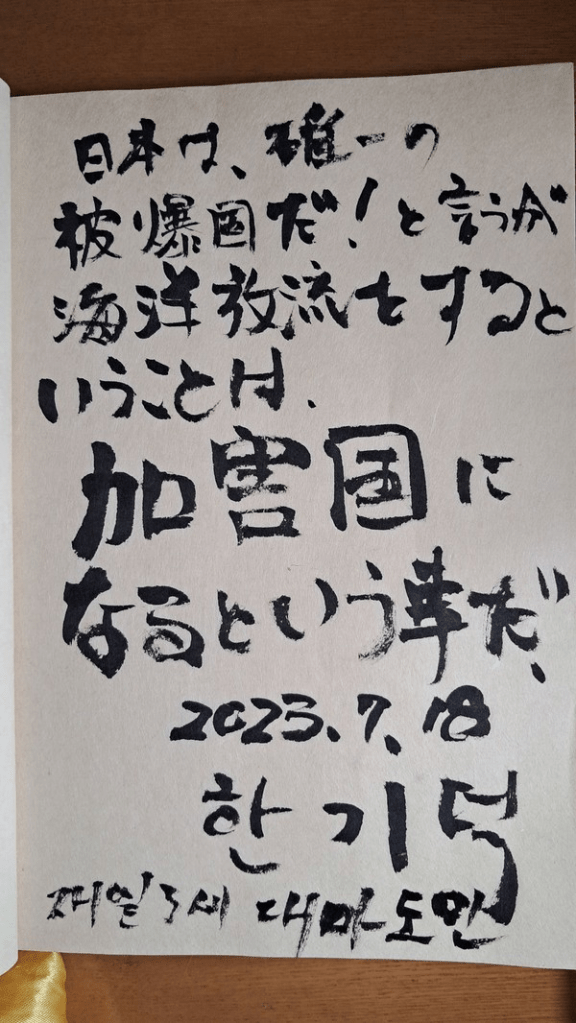 日本は、唯一の
被爆国だ!と言うが
海洋放流をすると
いうことは、
加害国に
なるという事だ、
2023.7.18
한기덕
재일3세 대마도민